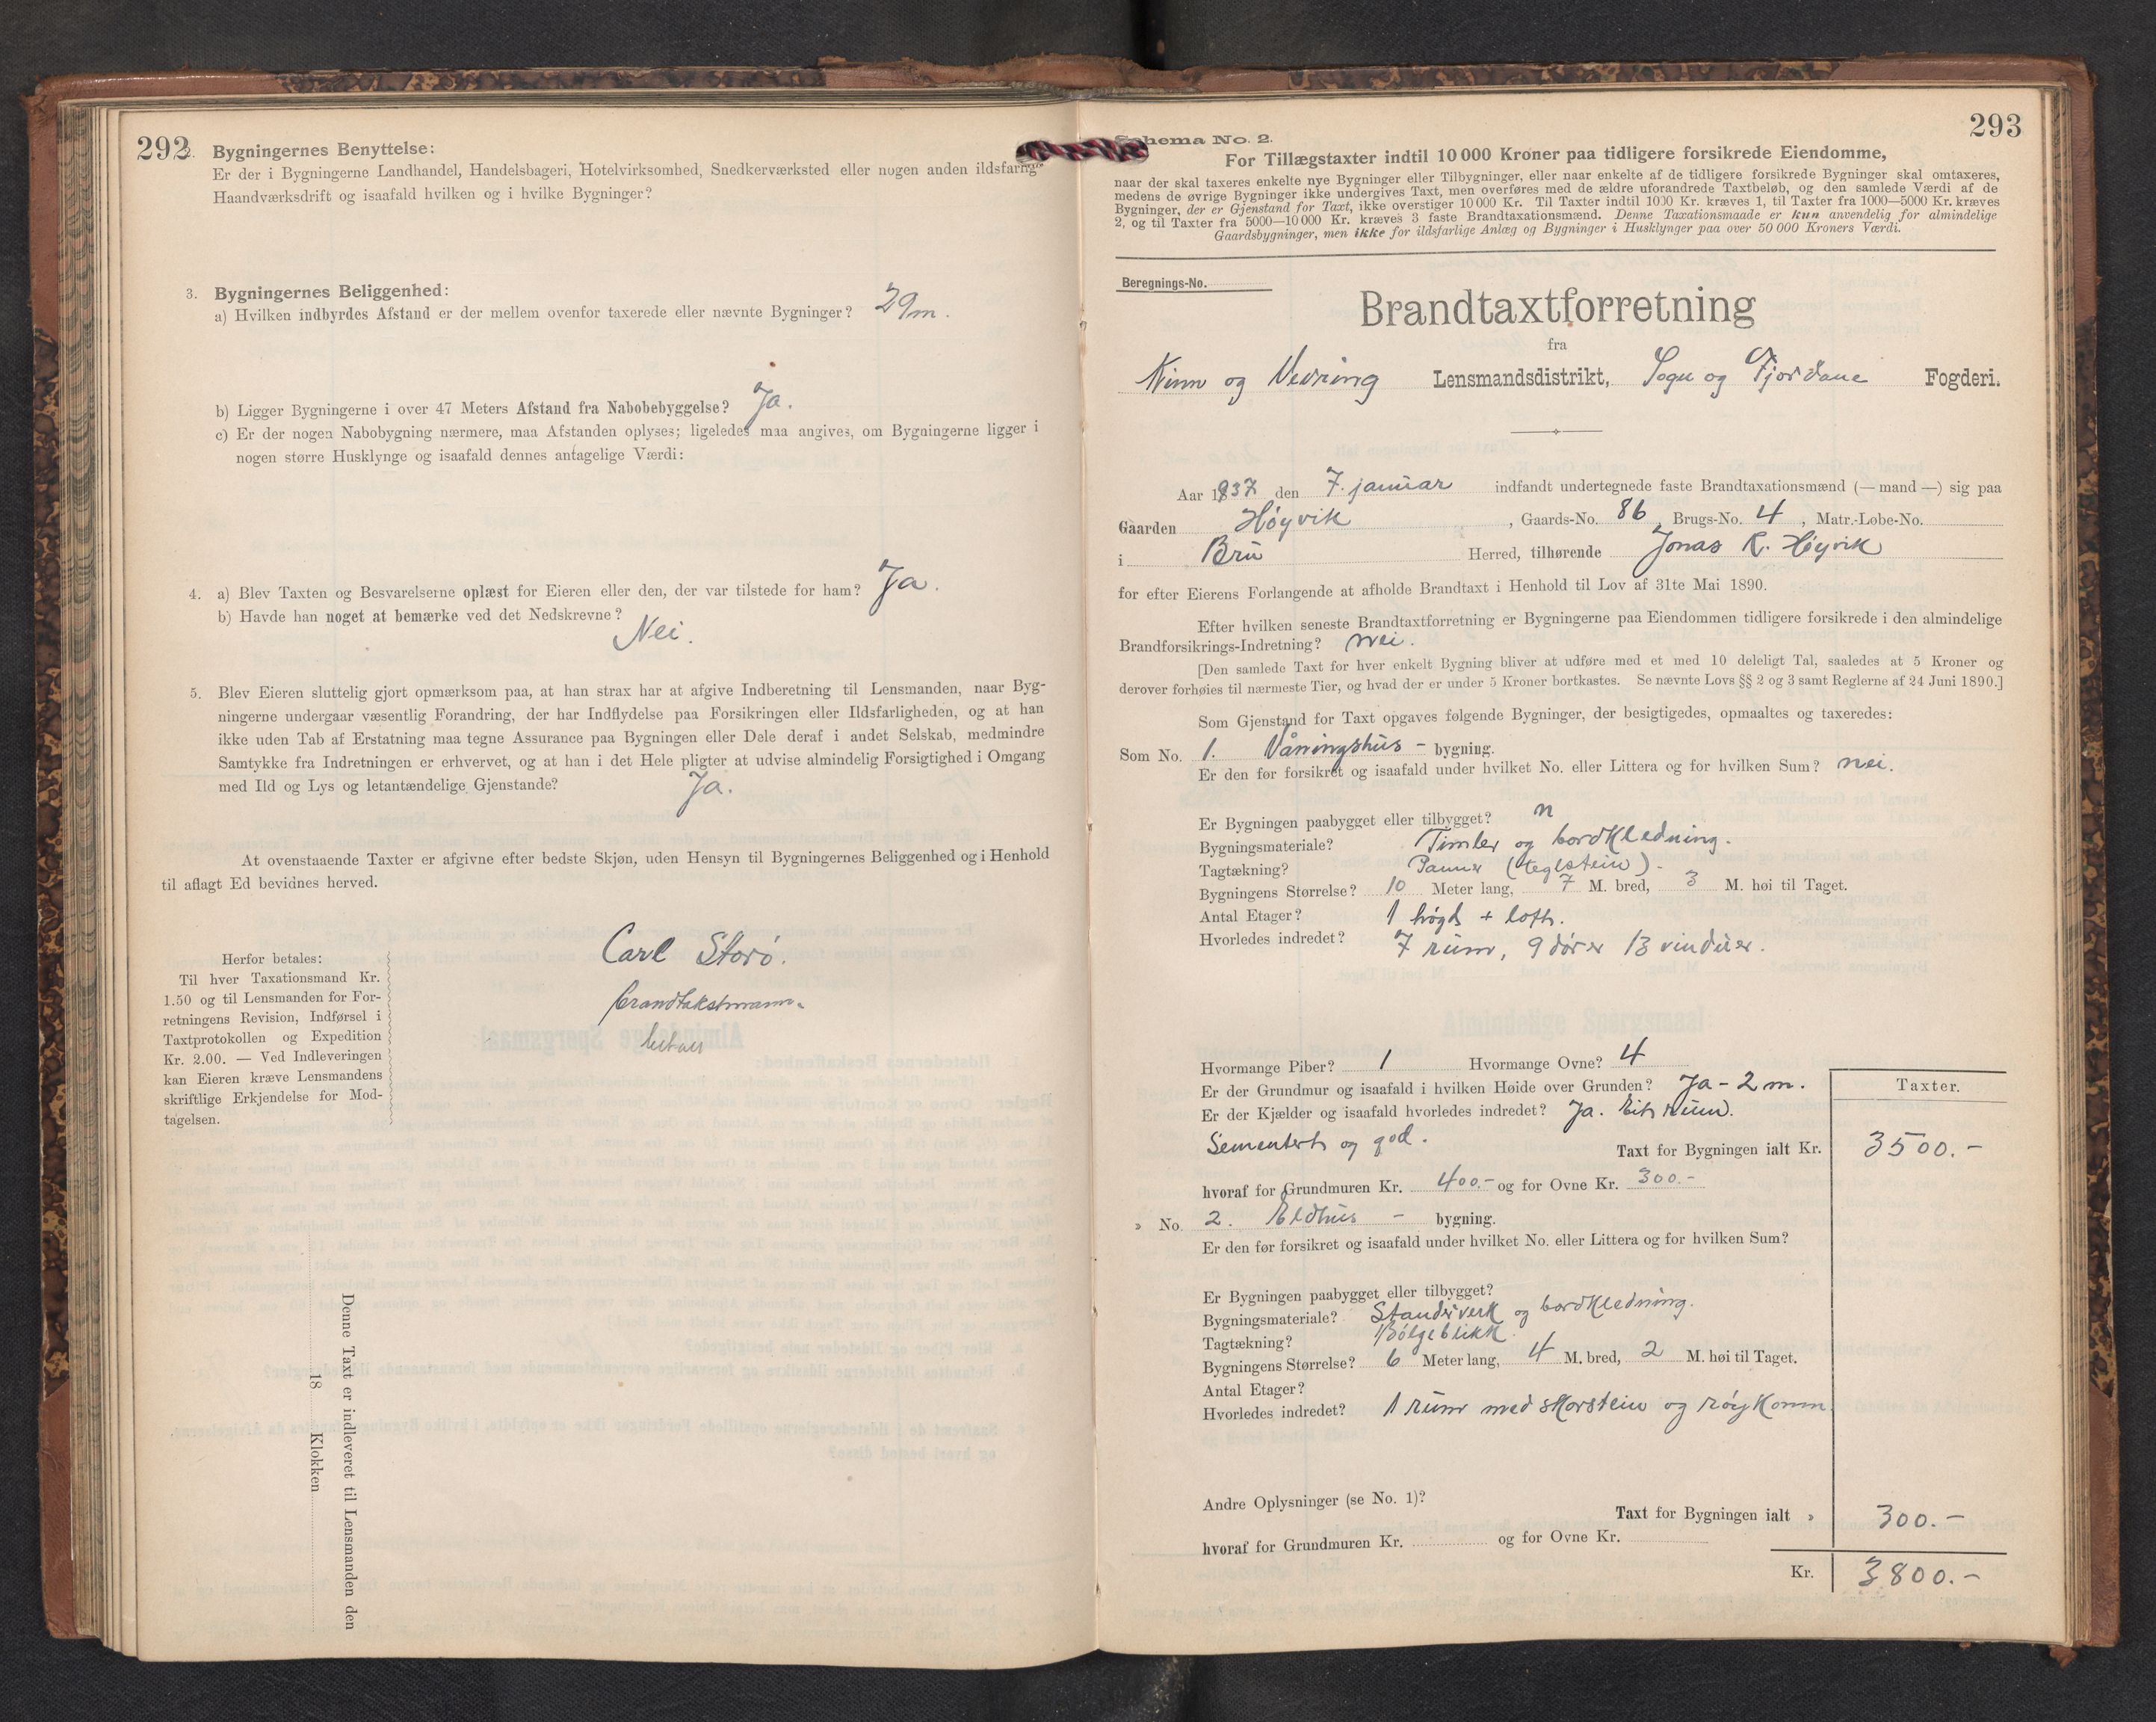 292
2. Bygningernes Benyttelse:
Er der i Bygningerne Landhandel, Handelsbageri, Hotelvirksomhed, Snedkerværksted eller nogen anden ildsfarlig
Haandværksdrift og isaafald hvilken og i hvilke Bygninger?
3. Bygningernes Beliggenhed:
a) Hvilken indbyrdes Afstand er der mellem ovenfor taxerede eller nævnte Bygninger? 29m.
b) Ligger Bygningerne i over 47 Meters Afstand fra Nabobebyggelse? Ja.
c) Er der nogen Nabobygning nærmere, maa Afstanden oplyses; ligeledes maa angives, om Bygningerne ligger i
nogen større Husklynge og isaafald dennes antagelige Værdi:
4. a) Blev Taxten og Besvarelserne oplæst for Eieren eller den, der var tilstede for ham? Ja.
b) Havde han noget at bemærke ved det Nedskrevne?
Nei.
5. Blev Eieren sluttelig gjort opmærksom paa, at han strax har at afgive Indberetning til Lensmanden, naar Byg-
ningerne undergaar væsentlig Forandring, der har Indflydelse paa Forsikringen eller Ildsfarligheden, og at han
ikke uden Tab af Erstatning maa tegne Assurance paa Bygningen eller Dele deraf i andet Selskab, medmindre
Samtykke fra Indretningen er erhvervet, og at han i det Hele pligter at udvise almindelig Forsigtighed i Omgang
med Ild og Lys og letantændelige Gjenstande? Ja.
At ovenstaaende Taxter er afgivne efter bedste Skjøn, uden Hensyn til Bygningernes Beliggenhed og i Henhold
til aflagt Ed bevidnes herved.
Carl Storø.
brandtakstmann.
Herfor betales:
Til hver Taxationsmand Kr.
1.50 og til Lensmanden for For-
retningens Revision, Indførsel i
Taxtprotokollen og Expedition
Kr. 2.00. — Ved Indleveringen
kan Eieren kræve Lensmandens
skriftlige Erkjendelse for Mod-
tagelsen.
Denne Taxt er indleveret til Lensmanden den
18 Klokken
293
Schema No. 2.
For Tillægstaxter indtil 10 000 Kroner paa tidligere forsikrede Eiendomme,
naar der skal taxeres enkelte nye Bygninger eller Tilbygninger, eller naar enkelte af de tidligere forsikrede Bygninger skal omtaxeres,
medens de øvrige Bygninger ikke undergives Taxt, men overføres med de ældre uforandrede Taxtbeløb, og den samlede Værdi af de
Bygninger, der er Gjenstand for Taxt, ikke overstiger 10 000 Kr. Til Taxter indtil 1000 Kr. kræves 1, til Taxter fra 1000—5000 Kr. kræves
2, og til Taxter fra 5000—10 000 Kr. kræves 3 faste Brandtaxationsmænd. Denne Taxationsmaade er kun anvendelig for almindelige
Gaardsbygninger, men ikke for ildsfarlige Anlæg og Bygninger i Husklynger paa over 50 000 Kroners Værdi.
Beregnings-No.
Brandtaxtforretning
fra
Kinn og Vevring Lensmandsdistrikt, Sogn og Fjordane Fogderi.
Aar 1937 den 7. januar indfandt undertegnede faste Brandtaxationsmænd (— mand —) sig paa
Gaarden Høyvik, Gaards-No. 86, Brugs-No. 4, Matr.-Løbe-No.
i Bru Herred, tilhørende Jonas R. Høyvik
for efter Eierens Forlangende at afholde Brandtaxt i Henhold til Lov af 31te Mai 1890.
Efter hvilken seneste Brandtaxtforretning er Bygningerne paa Eiendommen tidligere forsikrede i den almindelige
Brandforsikrings-Indretning? nei.
[Den samlede Taxt for hver enkelt Bygning bliver at udføre med et med 10 deleligt Tal, saaledes at 5 Kroner og
derover forhøies til nærmeste Tier, og hvad der er under 5 Kroner bortkastes. Se nævnte Lovs §§ 2 og 3 samt Reglerne af 24 Juni 1890.]
Som Gjenstand for Taxt opgaves følgende Bygninger, der besigtigedes, opmaaltes og taxeredes:
Som No. 1. Våningshus - bygning.
Er den før forsikret og isaafald under hvilket No. eller Littera og for hvilken Sum? nei.
Er Bygningen paabygget eller tilbygget? n
Bygningsmateriale? Timber og bordkledning.
Tagtækning? Panner (teglstein).
Bygningens Størrelse? 10 Meter lang, 7 M. bred, 3 M. høi til Taget.
Antal Etager? 1 høgd + loft.
Hvorledes indredet? 7 rum, 9 dører 13 vinduer.
Hvormange Piber? 1 Hvormange Ovne? 4
Er der Grundmur og isaafald i hvilken Høide over Grunden? Ja - 2 m.
Er der Kjælder og isaafald hvorledes indredet? Ja. Eit rum.
Sementert og god.
Taxter.
Taxt for Bygningen ialt Kr. 3500.-
hvoraf for Grundmuren Kr. 400.- og for Ovne Kr. 300.-
» No. 2. Eldhus - bygning.
Er den før forsikret og isaafald under hvilket No. eller Littera og for hvilken Sum?
Er Bygningen paabygget eller tilbygget?
Bygningsmateriale? Standsverk og bordkledning.
Tagtækning? Bølgeblikk
Bygningens Størrelse? 6 Meter lang, 4 M. bred, 2 M. høi til Taget.
Antal Etager?
Hvorledes indredet? 1 rum med skorstein og røykomn.
Andre Oplysninger (se No. 1)?
Taxt for Bygningen ialt » 300.-
hvoraf for Grundmuren Kr. og for Ovne Kr.
Kr. 3800.-